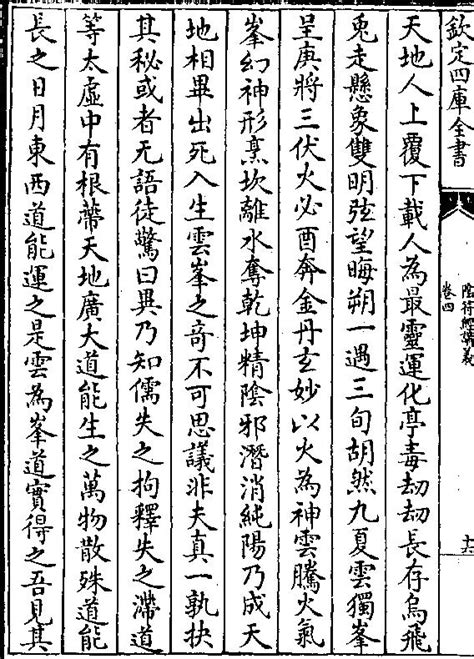 欽定四庫全書
陰符經講義
卷四
十六
天地人上覆下載人為最靈運化亭毒劫劫長存烏飛
兎走懸象雙明弦望晦朔一遇三旬胡然九夏雲獨峯
呈庚將三伏火必酉奔金丹玄妙以火為神雲騰火氣
峯幻神形烹坎離水奪乾坤精陰邪潛消純陽乃成天
地相畢出死入生雲峯之奇不可思議非夫真一孰抉
其秘或者无語徒驚曰異乃知儒失之拘釋失之滯道
等太虛中有根蔕天地廣大道能生之萬物散殊道能
長之日月東西道能運之是雲為峯道實得之吾見其